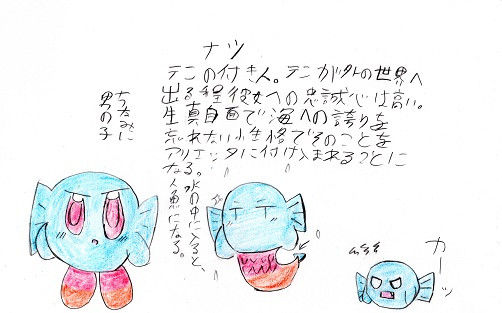 ナツ
テニの付き人。テニが外の世界へ
出る程彼女への忠誠心は高い。
生真面目で海への誇りを
忘れない性格でそのことを
アリエッタに付け込まれることに
なる。水の中に入ると、
人魚になる。
ちなみに
男の子
カーッ